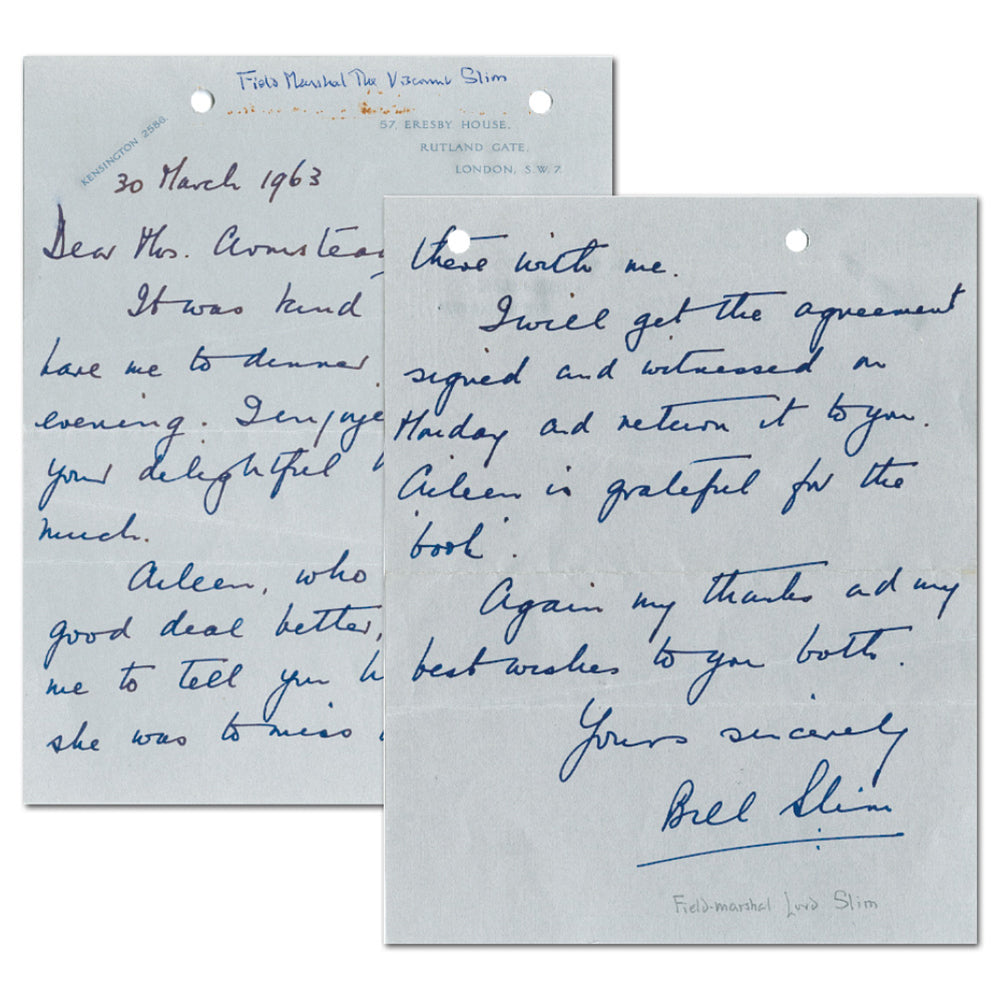 Field Marshal The Viscount Slim
KENSINGTON 2580.
57, ERESBY HOUSE,
RUTLAND GATE,
LONDON, S.W.7
30 March 1963
Dear Mrs. Armstea
It was kind
have me to dinner
evening. I enjoye
your delightful
much.
Aileen, who
good deal better,
me to tell you h
she was to miss
there with me.
I will get the agreement
signed and witnessed on
Monday and return it to you.
Aileen is grateful for the
book.
Again my thanks and my
best wishes to you both.
Yours sincerely
Bill Slim
Field-marshal Lord Slim